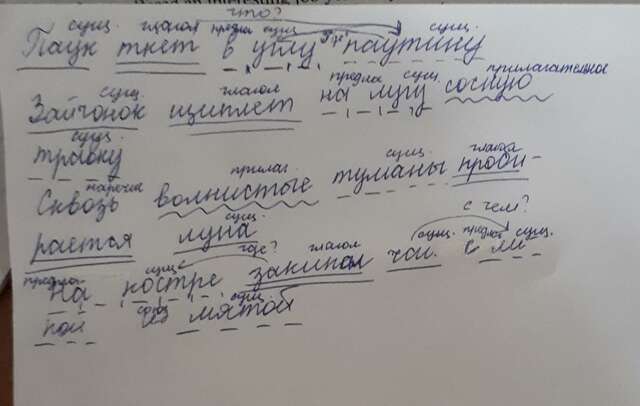 что?
сущ. глагол предлог сущ. где? сущ.
Паук ткет в углу паутину
сущ. глагол предлог сущ. прилагательное
Зайчонок щиплет на лугу сосную
сущ.
травку
наречие прилаг. сущ. глагол
Сквозь волнистые туманы проби-
сущ. с чем?
рается луна
предлог сущ. где? глагол сущ. предлог сущ.
На костре закипал чай с ли
союз сущ.
пой и мятой